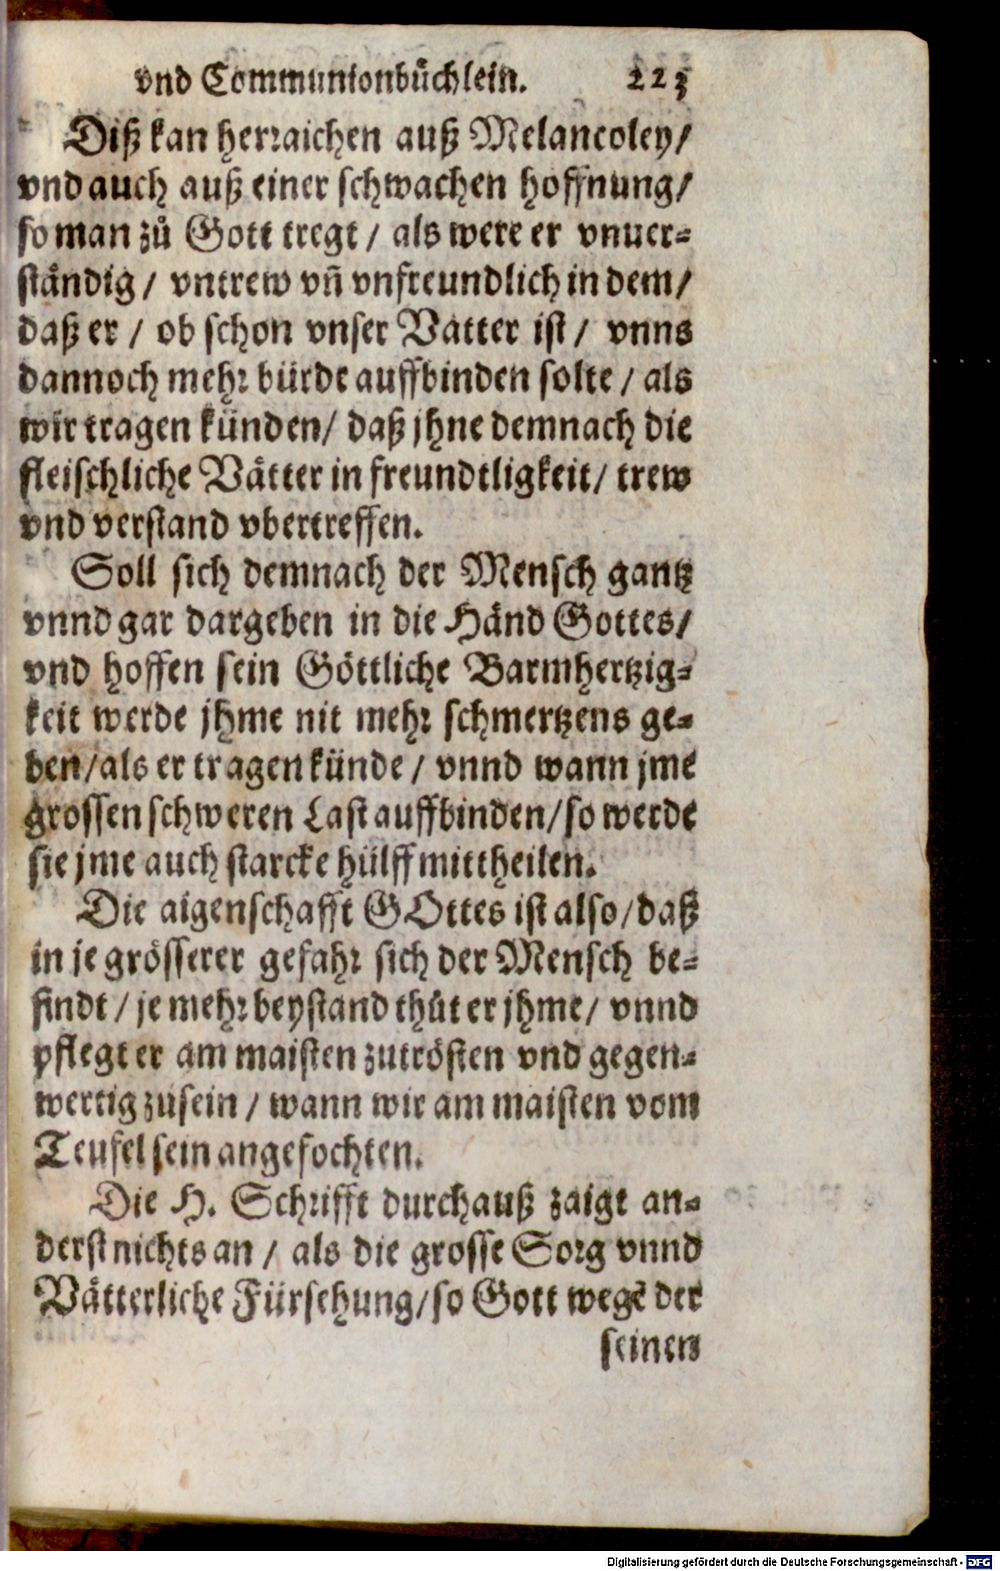 vnd Communionbüchlein. 223
Diß kan herraichen auß Melancoley/
vnd auch auß einer schwachen hoffnung/
so man zů Gott tregt / als were er vnuer-
ständig / vntrew vñ vnfreundlich in dem/
daß er / ob schon vnser Vatter ist / vnns
dannoch mehr bürde auffbinden solte / als
wir tragen künden/ daß jhne demnach die
fleischliche Vätter in freundtligkeit/ trew
vnd verstand vbertreffen.
Soll sich demnach der Mensch gantz
vnnd gar dargeben in die Händ Gottes/
vnd hoffen sein Göttliche Barmhertzig-
keit werde jhme nit mehr schmertzens ge-
ben/als er tragen künde / vnnd wann jme
grossen schweren Last auffbinden/so werde
sie jme auch starcke hülff mittheilen.
Die aigenschafft GOttes ist also/daß
in je grösserer gefahr sich der Mensch be-
findt / je mehr beystand thůt er jhme/ vnnd
pflegt er am maisten zutrösten vnd gegen-
wertig zusein / wann wir am maisten vom
Teufel sein angefochten.
Die H. Schrifft durchauß zaigt an-
derst nichts an / als die grosse Sorg vnnd
Vätterliche Fürsehung/so Gott wegē der
seinen
Digitalisierung gefördert durch die Deutsche Forschungsgemeinschaft - DFG